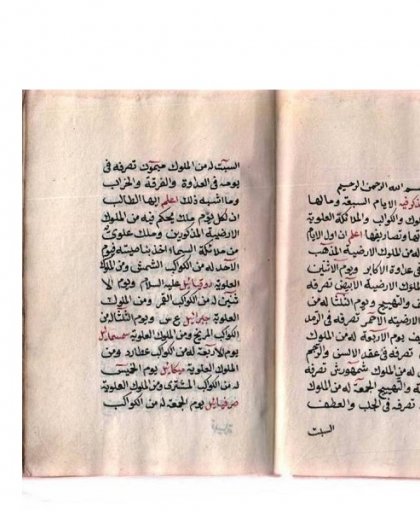 الله الرحمن الرحيم
فيه الايام السبعة وما لها
والكواكب والملائكة العلوية
وتصاريفها اعلم ان اول الايام
له من الملوك الارضية المذهب
في عداوة الاكابر ويوم الاثنين
الارضية الابيض تصرفه
والتهييج ويوم الثلثا له من
الارضية الاحمر تصرفه في الرمد
يوم الاربعة له من الملوك
تصرفه في عقد الالسن والرجم
له من الملوك شمهورش تصرفه
والتهييج الجمعة له من الملوك
تصرفه في الجلب والعطف
السبت
السبت له من الملوك ميمون تصرفه في
يومه في العداوة والفرقة والخراب
وما اشبه ذلك اعلم ايها الطالب
ان لكل يوم ملك يحكم فيه من الملوك
الارضية المذكورين وملك علوي
من ملائكة السماء اخذ بناصيته فيوم
الاحد له من الكواكب الشمس ومن الملوك
العلوية روقيائيل عليه السلام ويوم الا
ثنين له من الكواكب القمر ومن الملوك
العلوية جبرائيل ع س ويوم الثلثا له من
الكواكب المريخ ومن الملوك العلوية سمسمائيل
يوم الاربعة له من الكواكب عطارد ومن
الملوك العلوية ميكائيل يوم الخميس
له من الكواكب المشترى ومن الملوك العلوية
صرفيائيل يوم الجمعة له من الكواكب